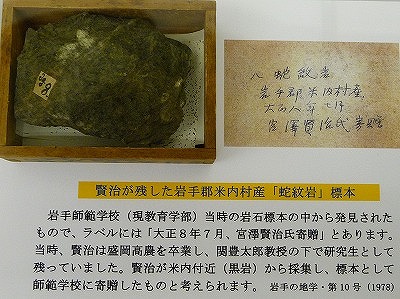 8
八 蛇紋岩
岩手郡米内村産
大正八年七月
宮澤賢治氏寄贈
賢治が残した岩手郡米内村産「蛇紋岩」標本
岩手師範学校(現教育学部)当時の岩石標本の中から発見された
もので、ラベルには「大正8年7月、宮澤賢治氏寄贈」とあります。
当時、賢治は盛岡高農を卒業し、関豊太郎教授の下で研究生として
残っていました。賢治が米内付近(黒岩)から採集し、標本として
師範学校に寄贈したものと考えられます。 岩手の地学・第10号(1978)